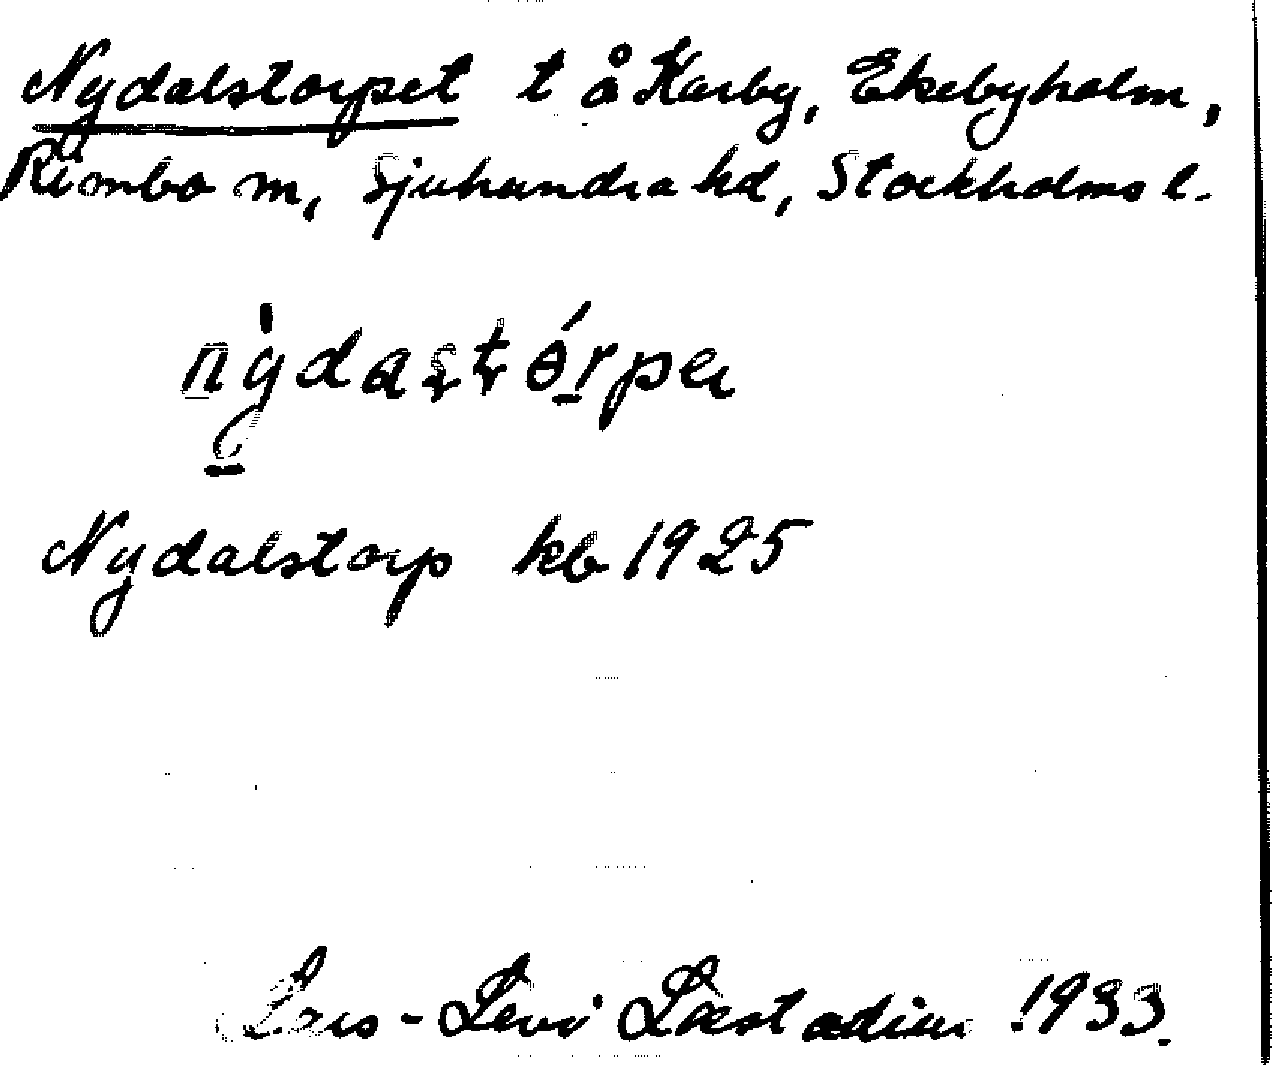 Nydalstorpet t å Karby, Ekebyholm,
Rimbo sn, Sjuhundra hd, Stockholms l.
nỳdastórpeɩ
Nydalstorp kb 1925
Lars-Levi Læstadius 1933.